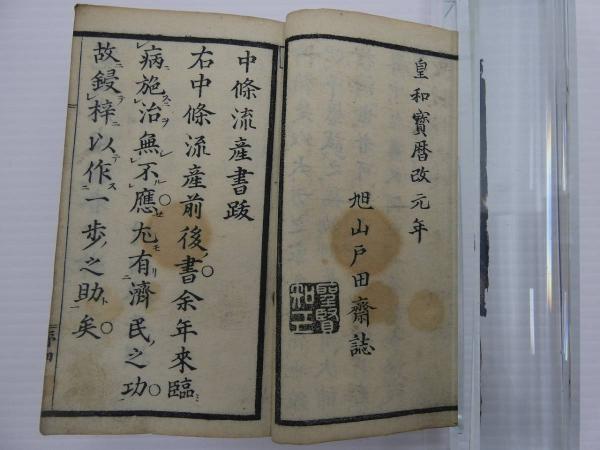 皇和寳暦改元年
旭山戸田齋誌
中條流産書跋
右中條流産前後書余年來臨
病施治無不應尤有濟民之功
故鋟梓以作一歩之助矣